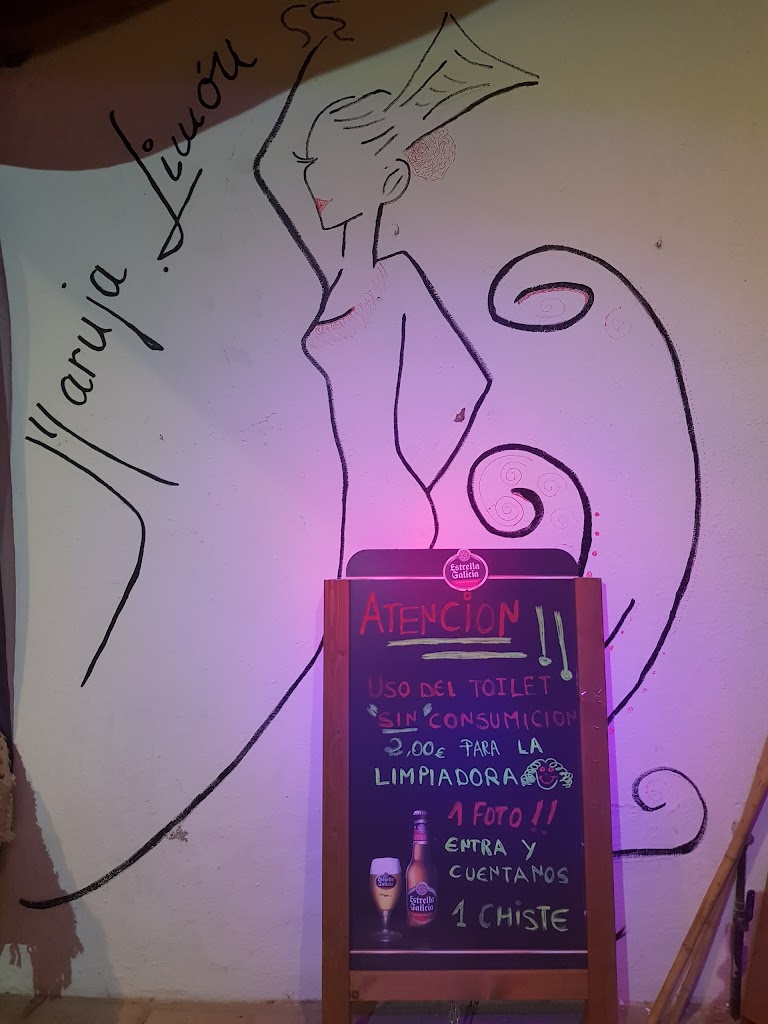 Maruja Limón
Estrella
Galicia
ATENCION !!
USO DEL TOILET
"SIN" CONSUMICION
2,00€ PARA LA
LIMPIADORA
1 FOTO !!
ENTRA Y
CUENTANOS
1 CHISTE
Estrella
Galicia
Estrella
Galicia